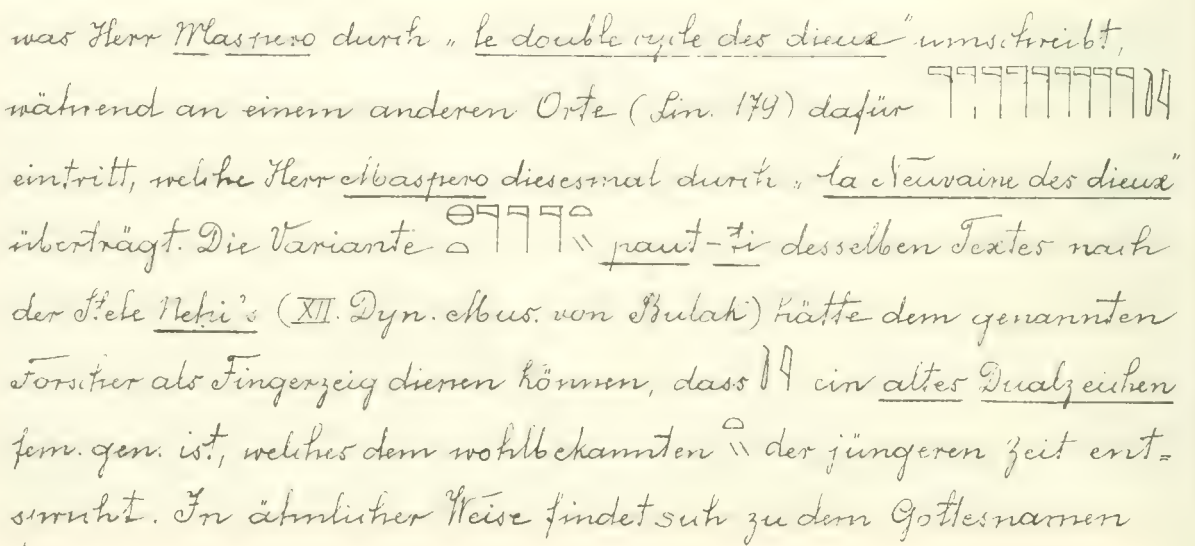 was Herr Maspero durch „le double cycle des dieux" umschreibt,
während an einem anderen Orte (Lin. 179) dafür 𓊹𓊹𓊹𓊹𓊹𓊹𓊹𓊹𓊹
eintritt, welche Herr Maspero diesesmal durch „la Neuvaine des dieux"
überträgt. Die Variante 𓐍𓏏𓊹𓊹𓊹𓏏𓏭 paut-ti desselben Textes nach
der Stele Nehi's (XII. Dyn. Mus. von Bulak) hätte dem genannten
Forscher als Fingerzeig dienen können, dass ein altes Dualzeichen
fem. gen. ist, welches dem wohlbekannten 𓏏𓏭 der jüngeren Zeit ent=
spricht. In ähnlicher Weise findet sich zu dem Gottesnamen